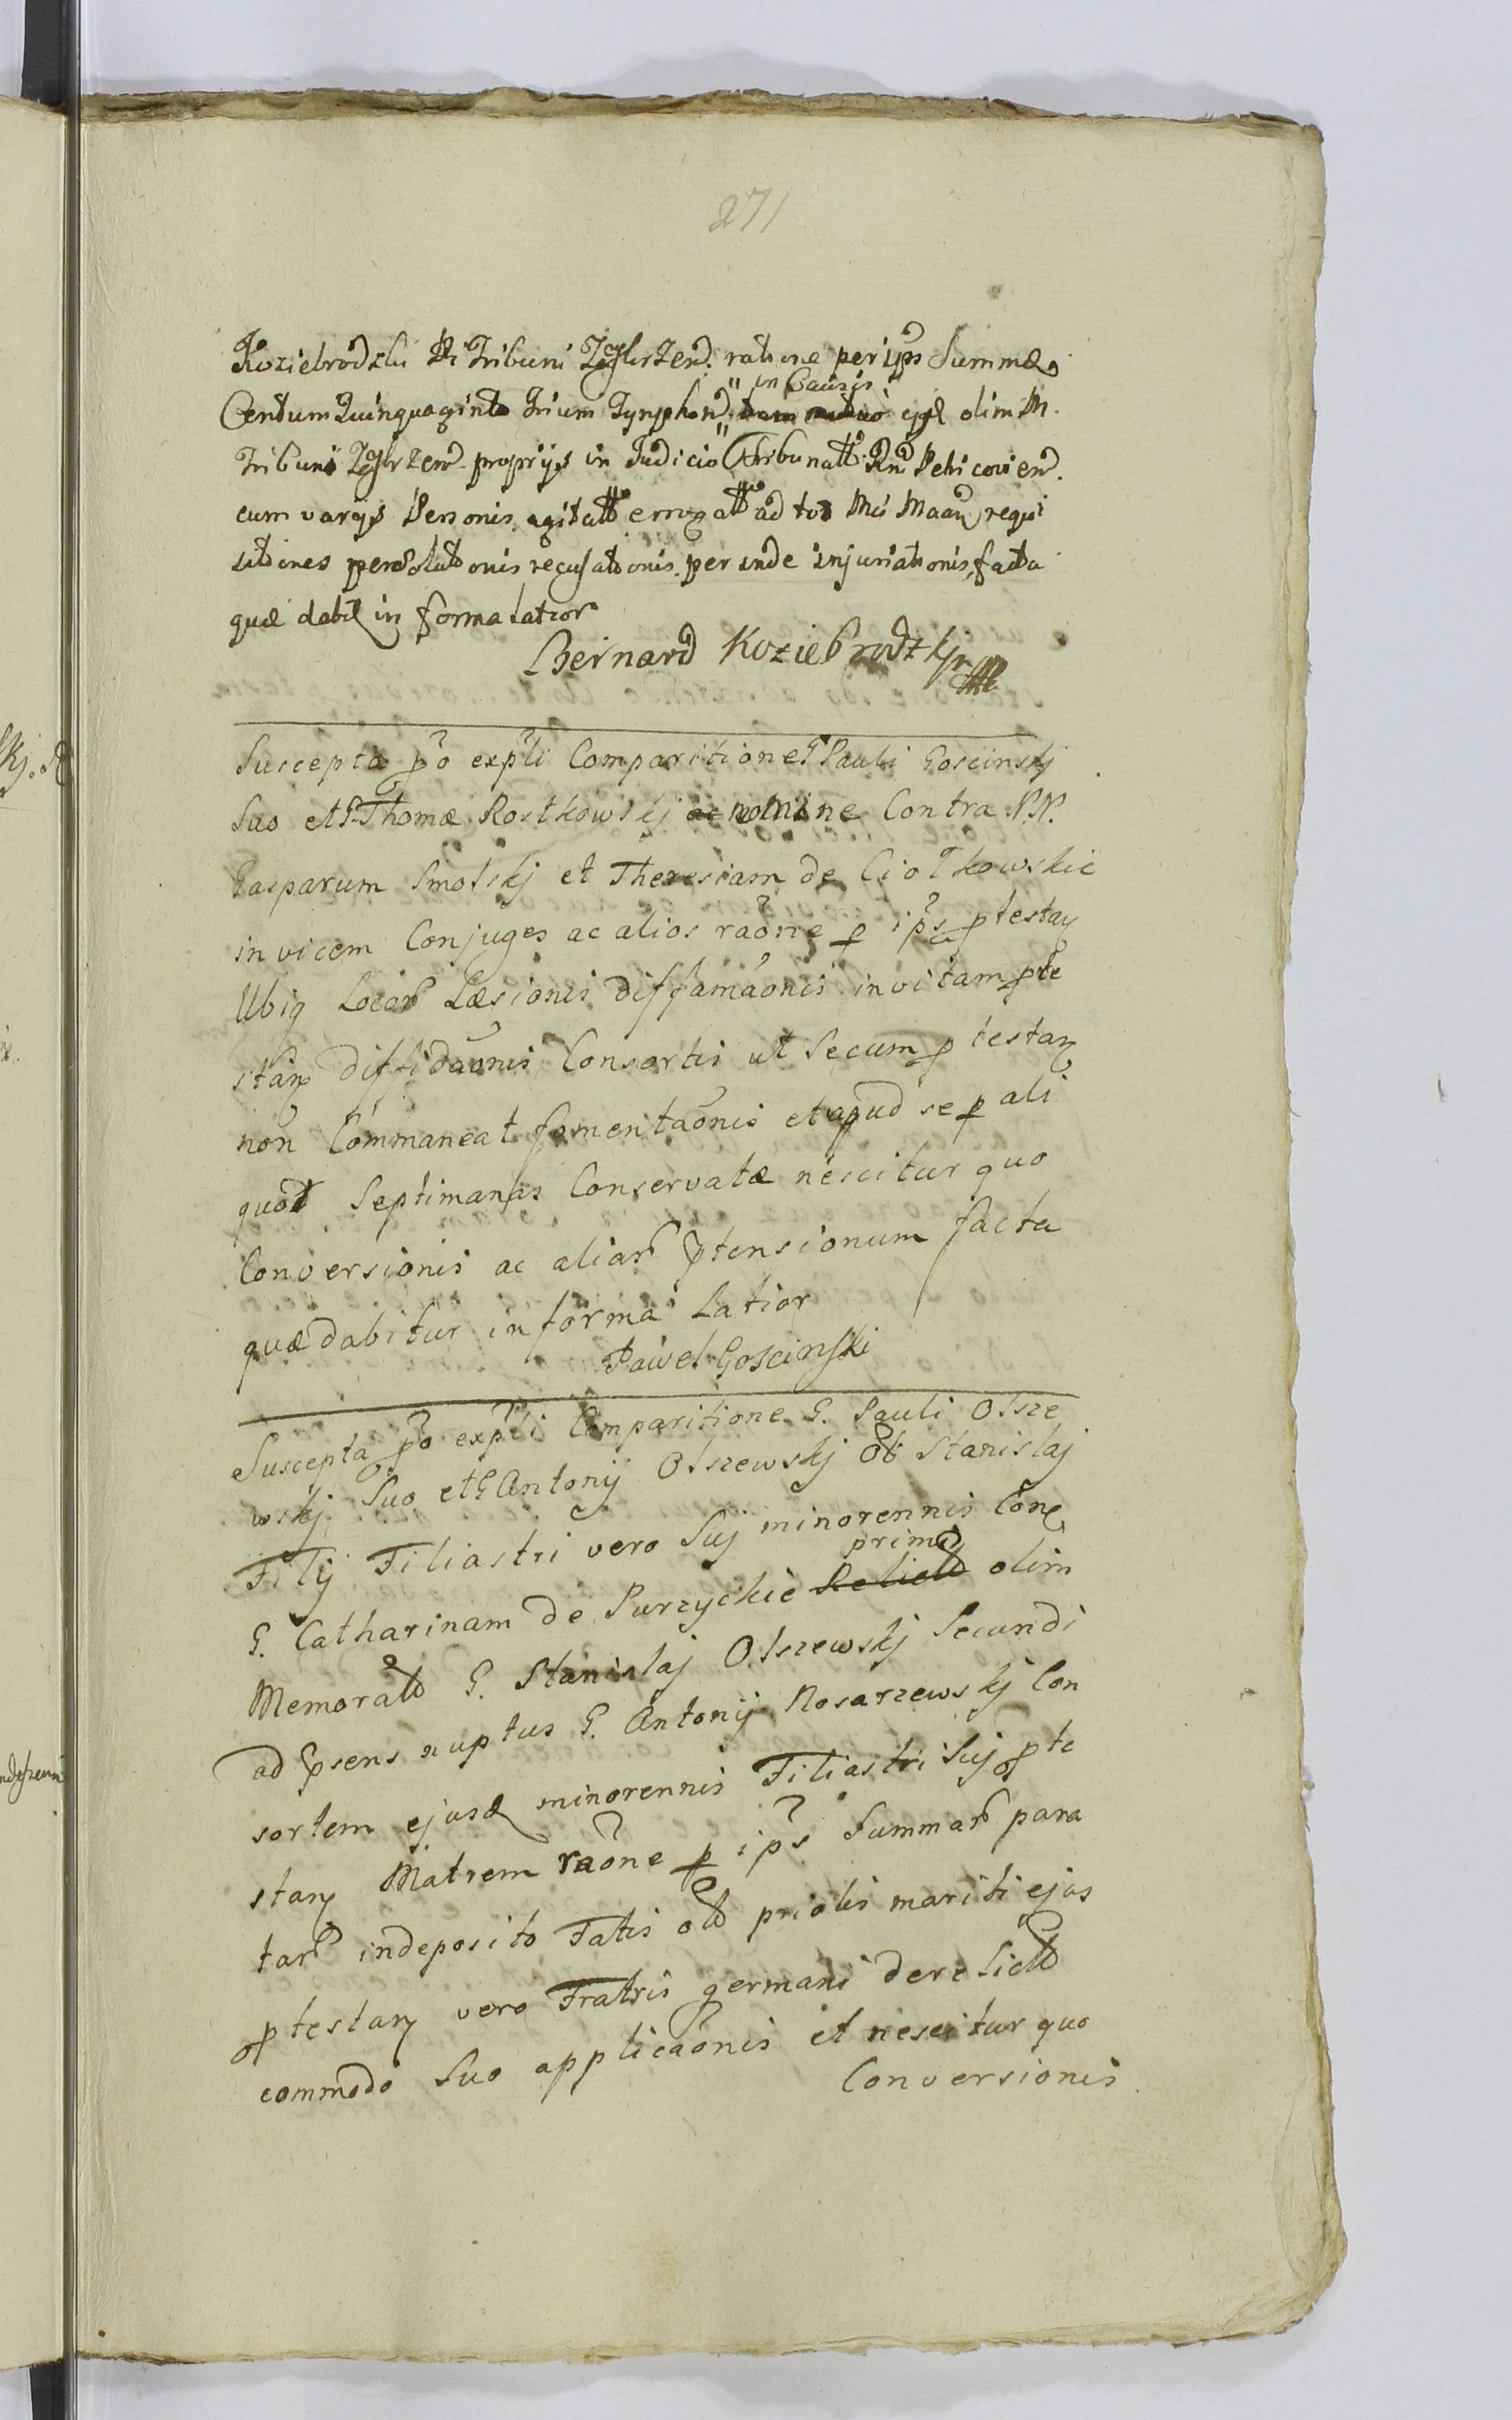 271
Koziebrodzki Tribuni Zglrzen. ratione per ips Summæ
in Causis
Centum Quinquaginta trium Tynphon. ejusd olim M.
Tribuni Zglrzen. proprijs in Judicio Tribunalt. Rni Petricovien.
cum varys Personis agitatt erogatt ad tot Mci Maan requi
sitiones persolutionis recusationis perinde injuriationis facta
quæ dabit in forma latior
Bernard Koziebrodzkj
Suscepta po expli Comparitione G Pauli Goscinskj
Suo et P. Thomæ Rostkowskj nomine Contra N.N.
Gasparum Smolskj et Theresiam de Ciołkowskie
invicem Conjuges ac alios raone p ips ptestan
Ubiq Locor Læsionis diffamaonis invitam pte
stan diffidaonis Consortis ut Secum ptestan
non Commaneat fomentaonis et apud se p ali
quot Septimanas Conservatæ nescitur quo
Conversionis ac aliar ptensionum facta
quæ dabitur in forma Latior
Paweł Goscinski
Suscepta po expli Comparitione G. Pauli Olsze
wskj Suo et G Antonij Olszewskj Stanislaj
Filij Filiastri vero Suj minorennis Con
primo
G. Catharinam de Purzyckie Relict olim
Memorat G. Stanislaj Olszewskj Secundi
ad psens nuptus G. Antonij Kosarzewskj Con
sortem ejusd minorennis Filiastri Suj pte
stan Matrem raone p ips Summar para
tar in deposito Fatis olt prioris mariti ejus
ptestan vero Fratris germani derelict
commodo Suo applicaonis et nescitur quo
Conversionis